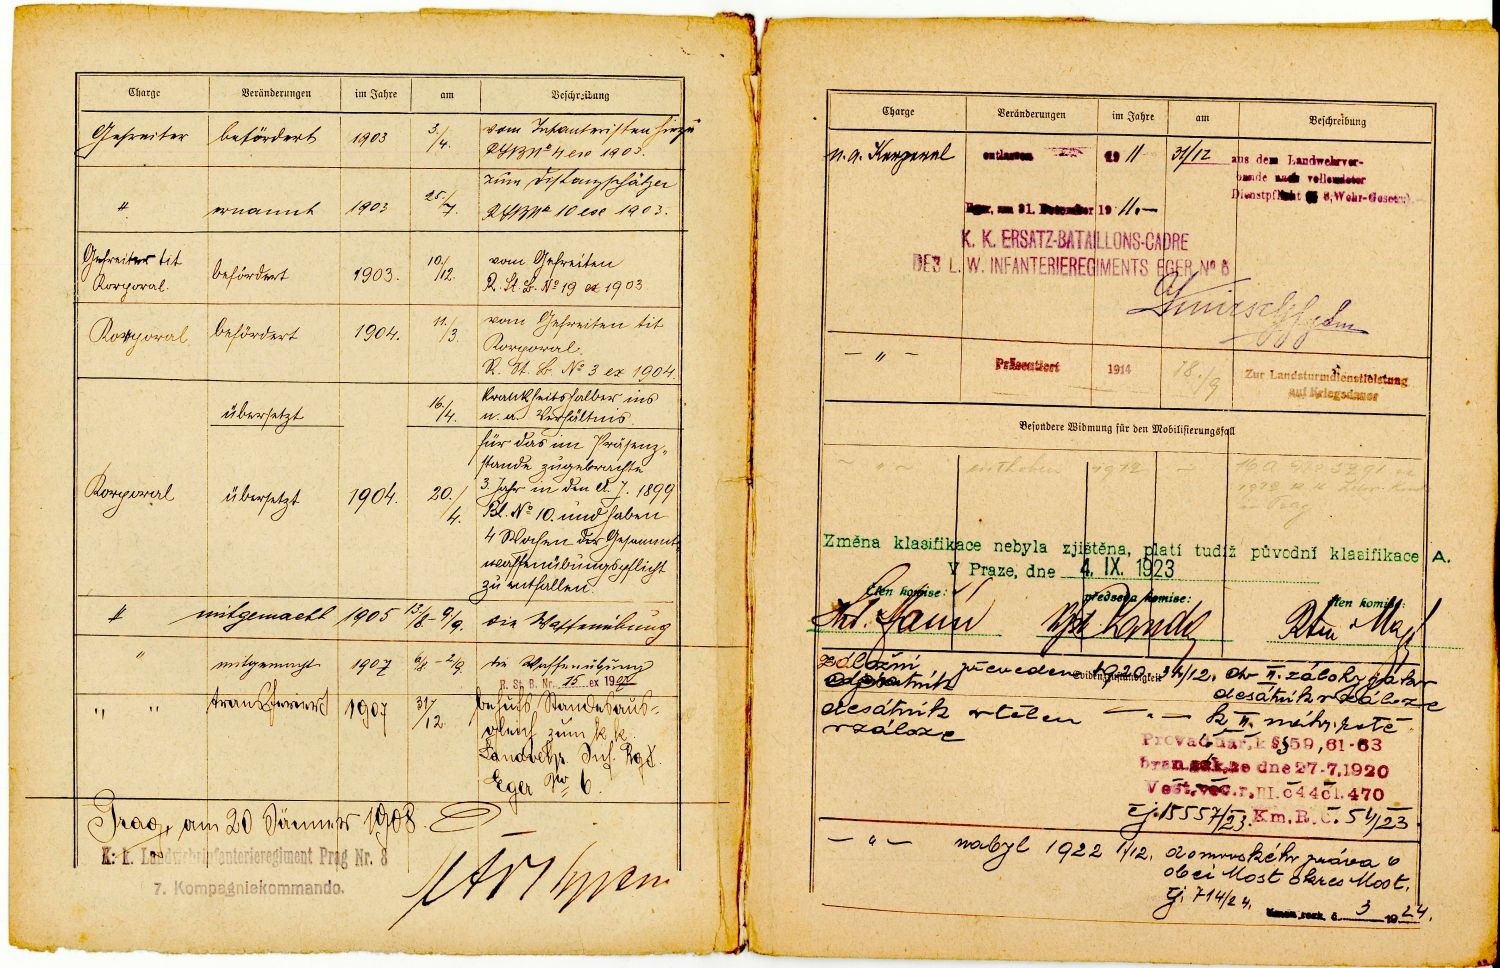 Charge Veränderungen im Jahre am Beschreibung
Gefreiter befördert 1903 3./4. vom Infanteristen hiezu
No 4 ex 1903.
" ernannt 1903 25./7. zum Distanzschätzer
No 10 ex 1903.
Gefreiter tit Korporal. befördert 1903. 10/12. vom Gefreiten
R. St. B. No 19 ex 1903
Korporal befördert 1904. 11./3. vom Gefreiten tit
Korporal.
R. St. B. No 3 ex 1904.
übersetzt 16./4. Krankheitshalber ins
n. a. Verhältnis.
Korporal übersetzt 1904. 20./4. für das im Präsenz-
stande zugebrachte
3. Jahr in den 1899
Bl. No 10. und haben
4 Wochen der Gesammt-
waffenübungspflicht
zu entfallen.
" mitgemacht 1905 13/8 - 9/9. die Waffenübung
" mitgemacht 1907 die Waffenübung
R. St. B. Nr. 15 ex 1907
" " transferiert 1907 31/12 behufs Standesaus-
gleich zum k. k.
Landwehr Inf. Rgt.
Eger No 6.
Prag, am 20 Jänner 1908.
K. k. Landwehrinfanterieregiment Prag Nr. 8
7. Kompagniekommando.
Charge Veränderungen im Jahre am Beschreibung
n. a. Korporal entlassen 1911 31/12 aus dem Landwehrver-
bande nach vollendeter
Dienstpflicht (§ 8, Wehr-Gesetz).
Eger, am 31. Dezember 1911.-
K. K. ERSATZ-BATAILLONS-CADRE
DES L. W. INFANTERIEREGIMENTS EGER No 6
— " — Präsentiert 1914 18./9 Zur Landsturmdienstleistung
auf Kriegsdauer
Besondere Widmung für den Mobilisierungsfall
— " — enthoben
Prag
Změna klasifikace nebyla zjištěna, platí tudíž původní klasifikace A.
V Praze, dne 4. IX. 1923
člen komise: předseda komise: člen komise:
záložní převeden 1920 31/12. do II. zálohy jako
desátník v záloze
desátník vtělen — " — k II.
v záloze
Prováď. nař. k §§ 59, 61-63
bran. zák. ze dne 27-7.1920
Věst. věc. r. III. č 44 čl. 470
čj. 15557/23. Km. R. Č. 51/23.
— " — nabyl 1922 1/12. domovského práva v
obci Most okres Most.
čj. 714/24.
3 1924.